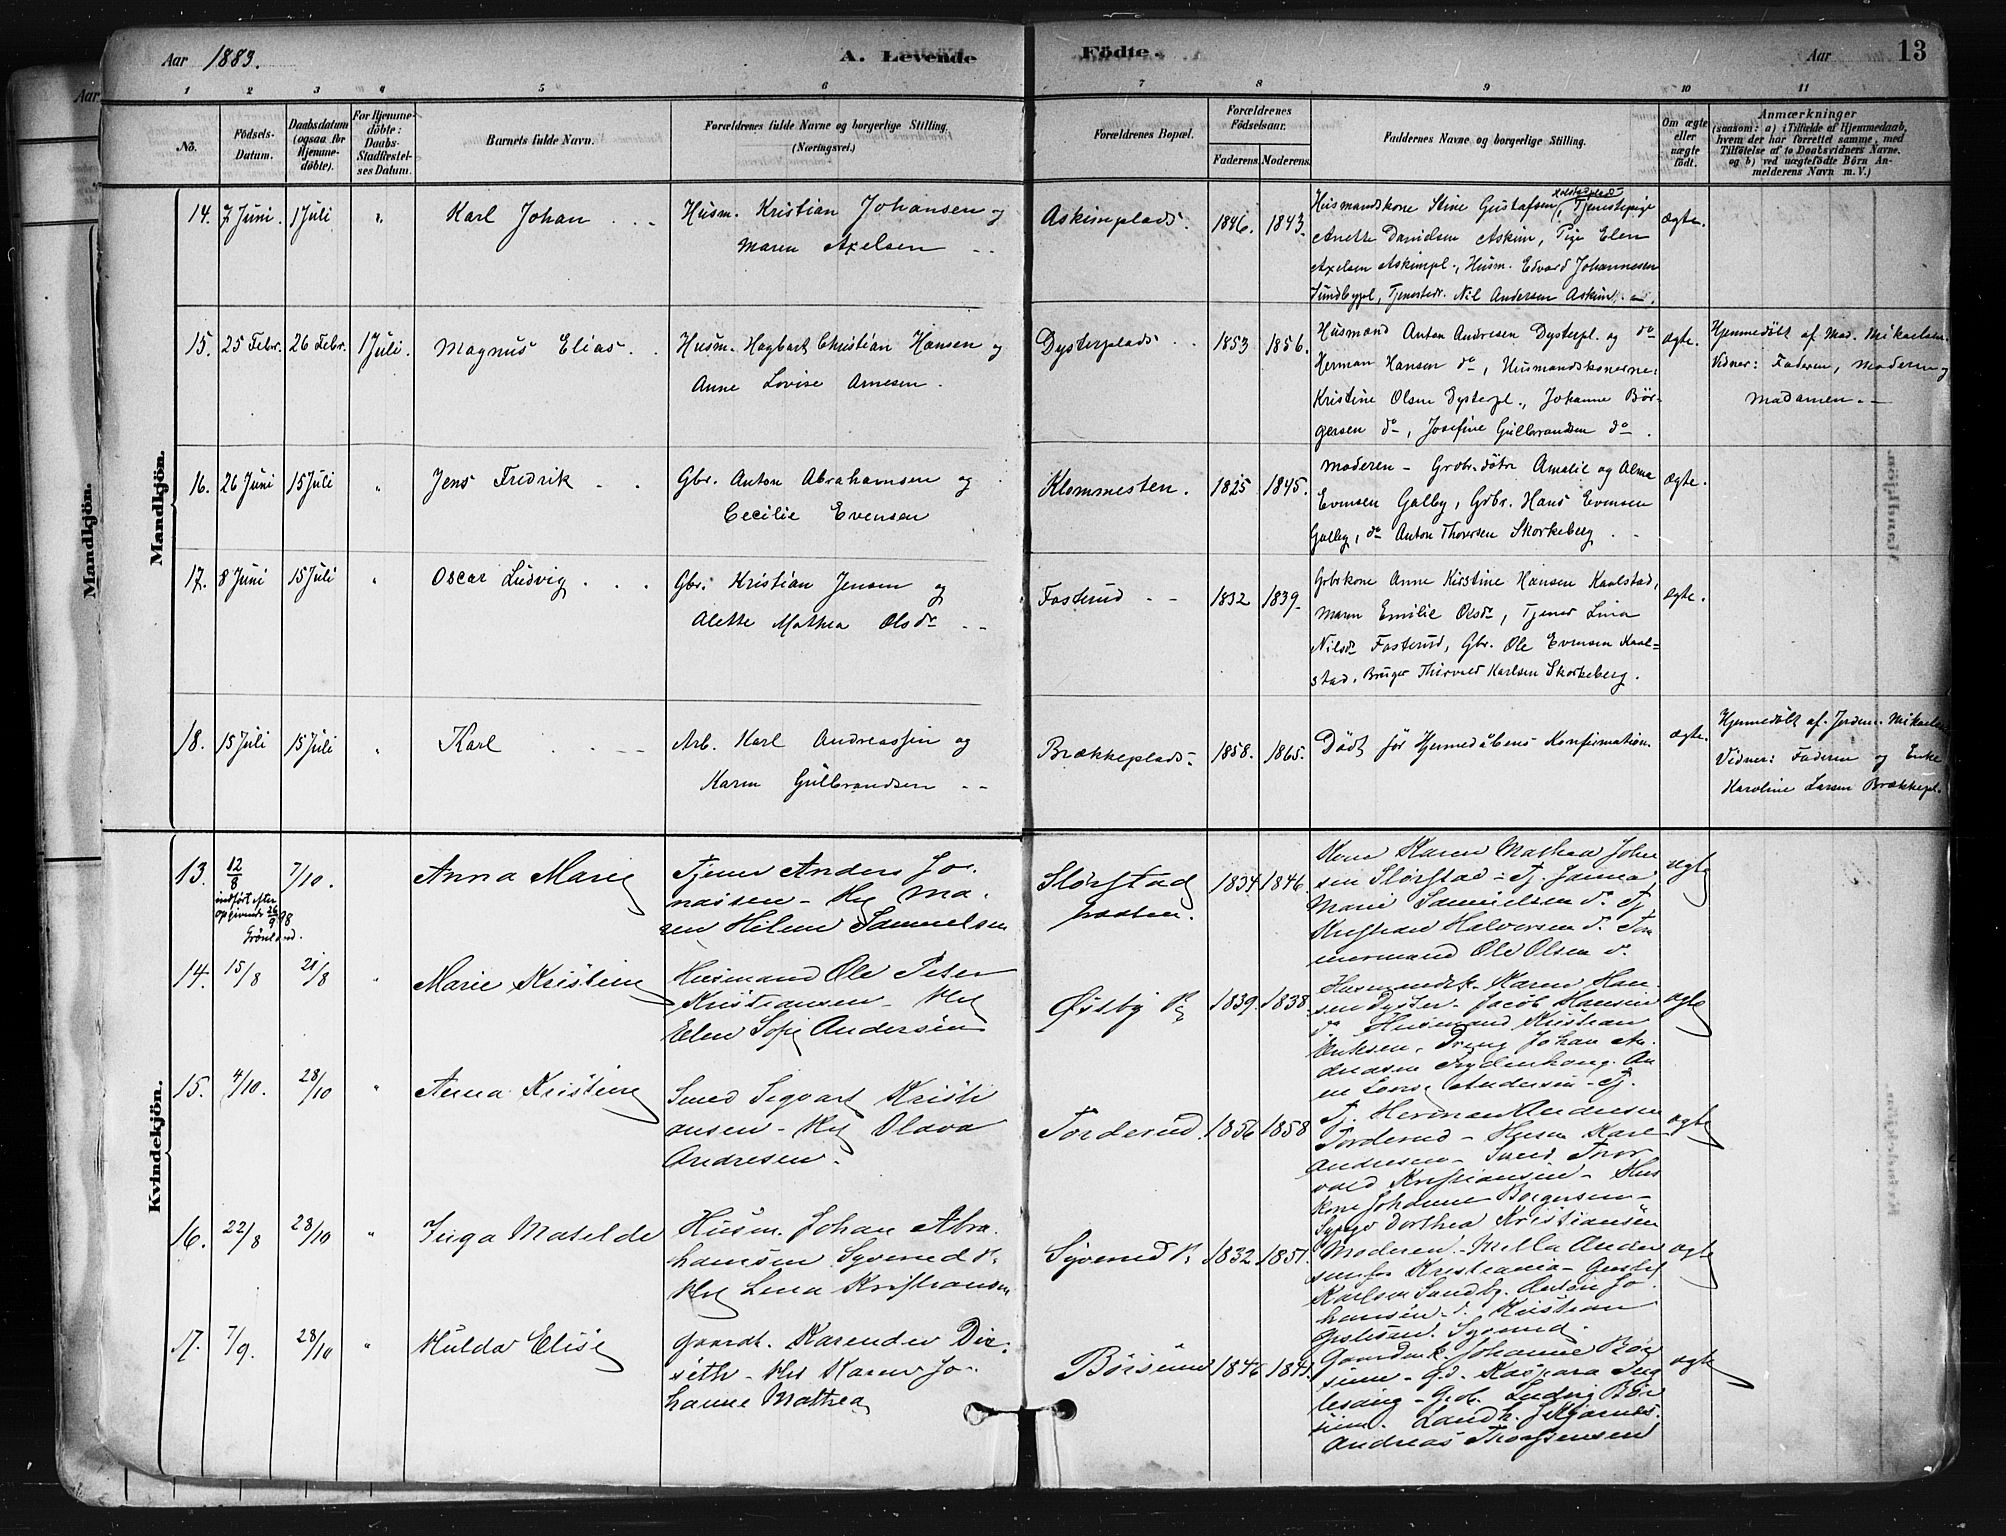 Aar 1883.
A. Levende
Födte.
Aar
13
1 2 3 4 5 6 7 8 9 10 11
No.
Födsels-
Datum.
Daabsdatum
(ogsaa for
Hjemme-
döbte).
For Hjemme-
döbte:
Daabs-
Stadfæstel-
ses Datum.
Barnets fulde Navn.
Forældrenes fulde Navne og borgerlige Stilling.
(Næringsvei.)
Forældrenes Bopæl.
Forældrenes
Födselsaar.
Faderens. Moderens.
Faddernes Navne og borgerlige Stilling.
Om ægte
eller
uægte
födt.
Anmærkninger
(saasom: a) i Tilfælde af Hjemmedaab,
hvem der har forrettet samme, med
Tilföielse af to Daabsvidners Navne,
og b) ved uægtefödte Börn An-
melderens Navn m. V.)
Aar
Mandkjön.
Mandkjön.
Kvindekjön.
14. 7 Juni. 1 Juli " Karl Johan
Husm. Kristian Johansen og
Maren Axelsen
Askimplads. 1846. 1843.
Husmandskone Stine Gustafsen, Tjenestepige
Anette Danielsen Askim, Pige Elen
Axelsen Askimpl., Husm. Edvard Johannesen
Sundbypl, Tjenestedr. Nil Andersen Askim.
ægte.
15. 25 Febr. 26 Febr. 1 Juli. Magnus Elias
Husm. Hagbart Christian Hansen og
Anne Lovise Arnesen.
Dysterplads 1853 1856.
Husmænd Anton Andresen Dysterpl. og do
Herman Hansen do, Husmandskonerne:
Kristine Olsen Dysterpl., Johanne Bör-
gersen do, Josefine Gulbrandsen do.
ægte.
Hjemmedöbt af Mad. Mikaelsen
Vidner: Faderen, Moderen og
Madamen.
16. 26 Juni 15 Juli " Jens Fredrik
Gbr. Anton Abrahamsen og
Cecilie Evensen
Klommesten. 1825 1845.
Moderen - Grbr.döbr Amalie og Alma
Evensen Galby, Grbr. Hans Evensen
Galby, do Anton Thoresen Skorkeberg
ægte.
17. 8 Juni 15 Juli " Oscar Ludvig
Gbr. Kristian Jensen og
Alette Mathea Olsdr
Fosterud 1832 1839.
Grbrkone Anne Kirstine Hansen Kaalstad,
Maren Emilie Olsdr, Tjener Lina
Nilsdr Fosterud, Gbr. Ole Evensen Kaal-
stad, Bruger Thorvald Karlsen Skorkeberg.
ægte.
18. 15 Juli 15 Juli " Karl
Arb. Karl Andreassen og
Karen Gulbrandsen
Brækkeplads 1858. 1865.
Död før Hjemmedåbens Konfirmation.
ægte.
Hjemmedöbt af Jordm. Mikaelsen
Vidner: Faderen og Enke
Karoline Larsen Brækkepl.
13. 12/8 7/10. Anna Marie
indført efter
opgivende 26/9 98
Grönland.
Tjener Anders Jo-
naisen - Hu Ma-
ren Helene Samuelsen
Slörstad
1834 1846.
Kone Karen Mathea Johan
sen Slörstad - Tj. Janna
Marie Samuelsen do Tj
Kristian Halvorsen do Töm
mermand Ole Olsen do
ægte
14. 15/8 21/8 " Marie Kristine
Husmand Ole Peter
Kristiansen - Hu
Elen Sofie Andersen
Østby Pl 1839. 1838
Husmandsk. Karen Han-
sen Dyster - Jacob Hansen
do Husmand Kristian
Eriksen, Dreng Johan An-
dreasen Frydenhaug. An-
ne Lovise Andersen - Tj.
ægte
15. 4/10. 28/10 " Anna Kristine
Smed Sigvart Kristi
ansen - Hu Olava
Andresen.
Torderud. 1856 1858
Tj. Herman Andresen
Torderud - Husm Karl
Andresen - Smed Thor
vald Kristiansen - Hus
kone Johanne Börgersen -
Sypige Dorthea Kristiansen
ægte
16. 22/8 28/10 " Inga Matilde
Husm. Johan Abra
hamsen Syverud Pl
Hu Lena Kristiansen
Syverud Pl 1832 1851.
Moderen - Milla Ander
sen fra Kristiania - Gustaf
Karlsen Sundby. Anton Jo
hansen do. Kristian
Gustesen Syverud.
ægte
17. 7/9. 28/10 " Hulda Elise
Gaardb. Karender Dir-
seth - Hu Karen Jo-
hanne Mathea
Börsum 1846 1841.
Gaardmk. Johanne Bör
sum - Gd. Kaspara Ing
lesang - Grdb. Ludvig Bör
sum. Landh.
Andreas Thorstensen
ægte